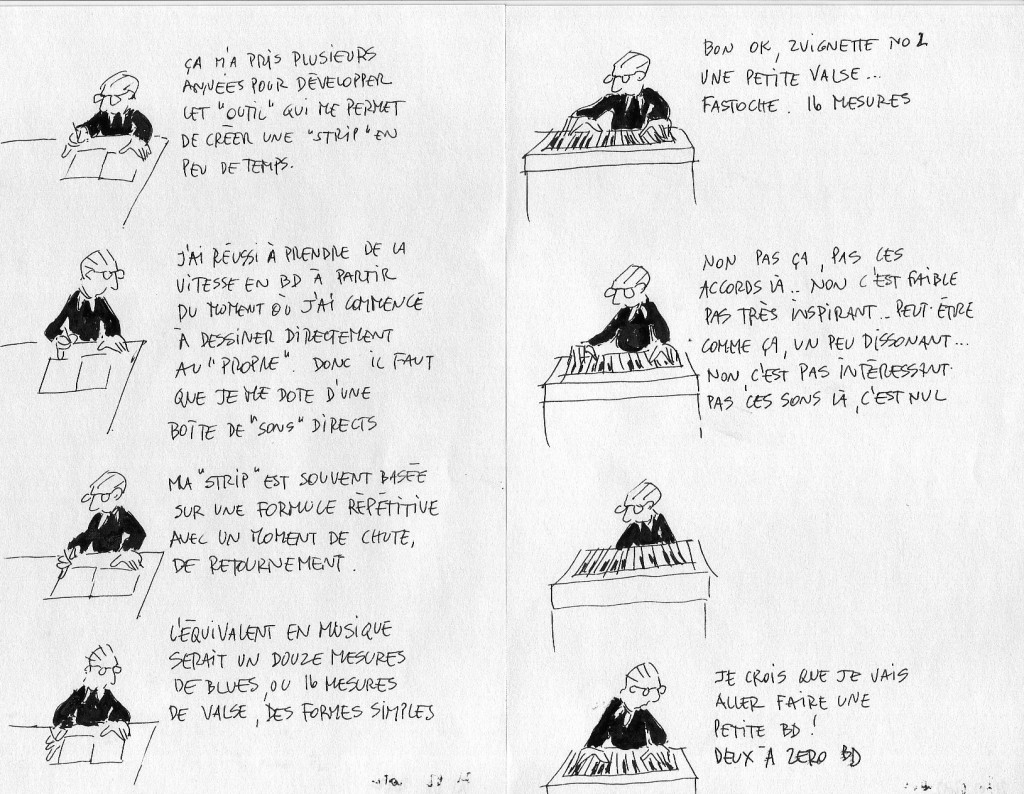 ÇA M'A PRIS PLUSIEURS
ANNÉES POUR DÉVELOPPER
CET "OUTIL" QUI ME PERMET
DE CRÉER UNE "STRIP" EN
PEU DE TEMPS.
J'AI RÉUSSI À PRENDRE DE LA
VITESSE EN BD À PARTIR
DU MOMENT OÙ J'AI COMMENCÉ
À DESSINER DIRECTEMENT
AU "PROPRE". DONC IL FAUT
QUE JE ME DOTE D'UNE
BOÎTE DE "SONS" DIRECTS
MA "STRIP" EST SOUVENT BASÉE
SUR UNE FORMULE RÉPÉTITIVE
AVEC UN MOMENT DE CHUTE,
DE RETOURNEMENT.
L'ÉQUIVALENT EN MUSIQUE
SERAIT UN DOUZE MESURES
DE BLUES, OU 16 MESURES
DE VALSE, DES FORMES SIMPLES
BON OK, ZUIGNETTE NO 2
UNE PETITE VALSE...
FASTOCHE. 16 MESURES
NON PAS ÇA, PAS CES
ACCORDS LÀ.. NON C'EST FAIBLE
PAS TRÈS INSPIRANT... PEUT-ÊTRE
COMME ÇA, UN PEU DISSONANT...
NON C'EST PAS INTÉRESSANT.
PAS CES SONS LÀ, C'EST NUL
JE CROIS QUE JE VAIS
ALLER FAIRE UNE
PETITE BD !
DEUX À ZERO BD